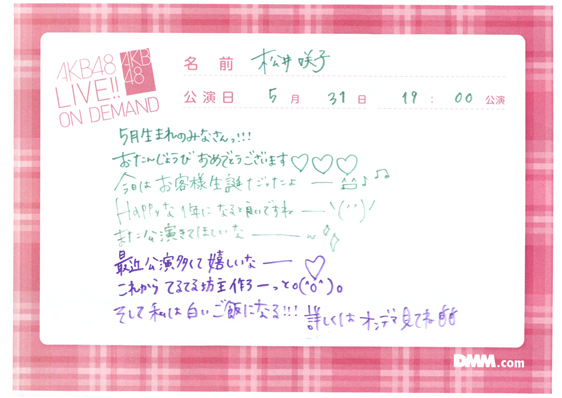 AKB48
LIVE!!
ON DEMAND
AKB
48
名前 松井咲子
公演日 5月 31日 19:00 公演
5月生まれのみなさんっ!!!
おたんじょうび おめでとうございます♡♡♡
今日は お客様生誕だったよ ー ♪♫
Happyな1年になると良いですね ー \(^^)/
また公演きてほしいな ー
最近公演多くて嬉しいな ー ♡
これから てるてる坊主作ろーっと。(^o^)。
そして私は白いご飯になる!!! 詳しくは オンデマ見てね
DMM.com